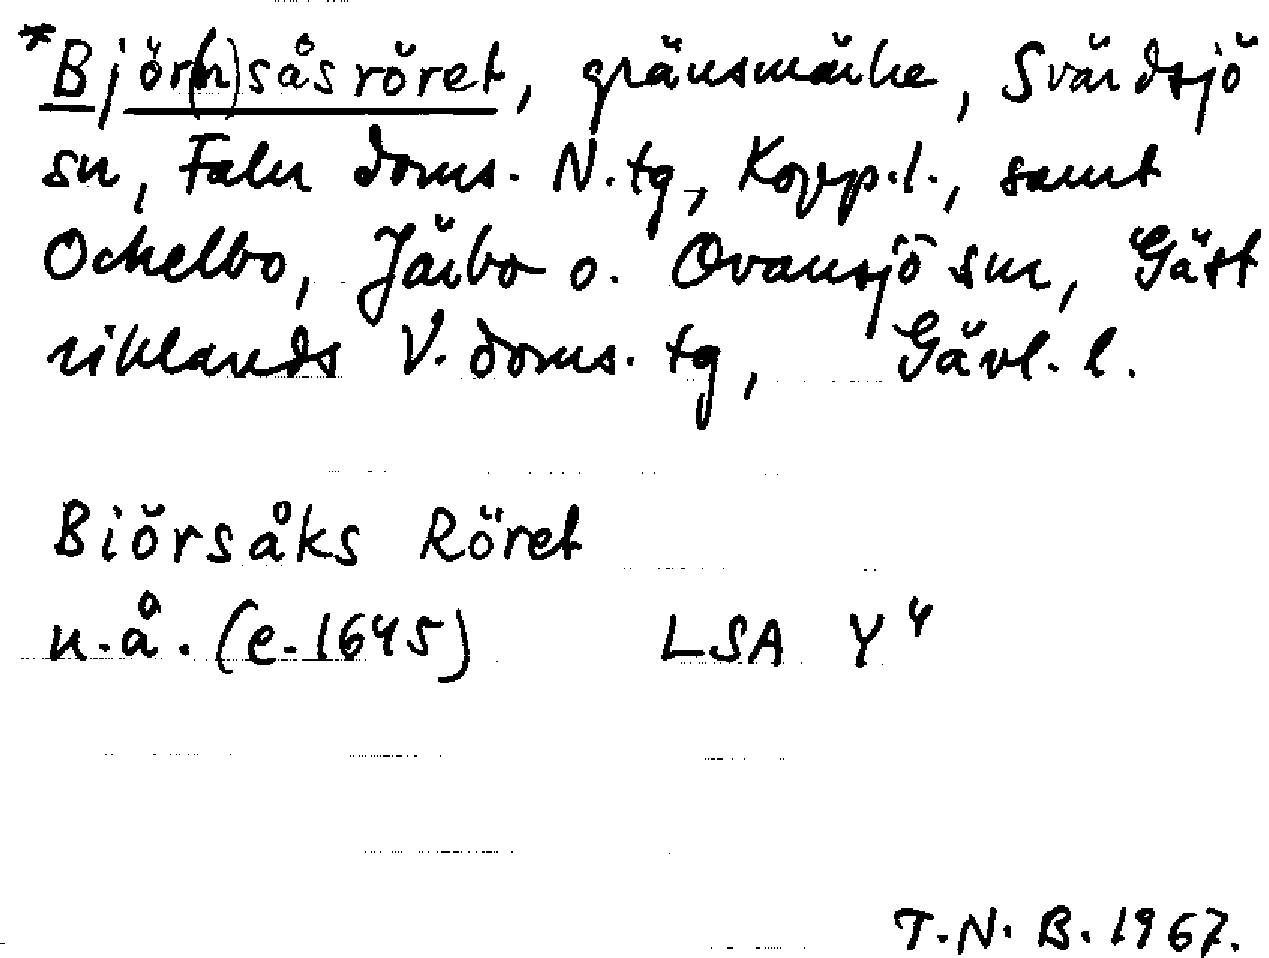 *Bjö​r(n)såsröret, gränsmärke, Svärdsjö
sn, Falu doms. N. tg, Kopp. l., samt
Ockelbo, Järbo o. Ovansjö snr, Gäst
riklands V. doms. tg, Gävl. l.
Biörsåks Röret
u.å. (e. 1645) LSA Y4
T.N.B. 1967.